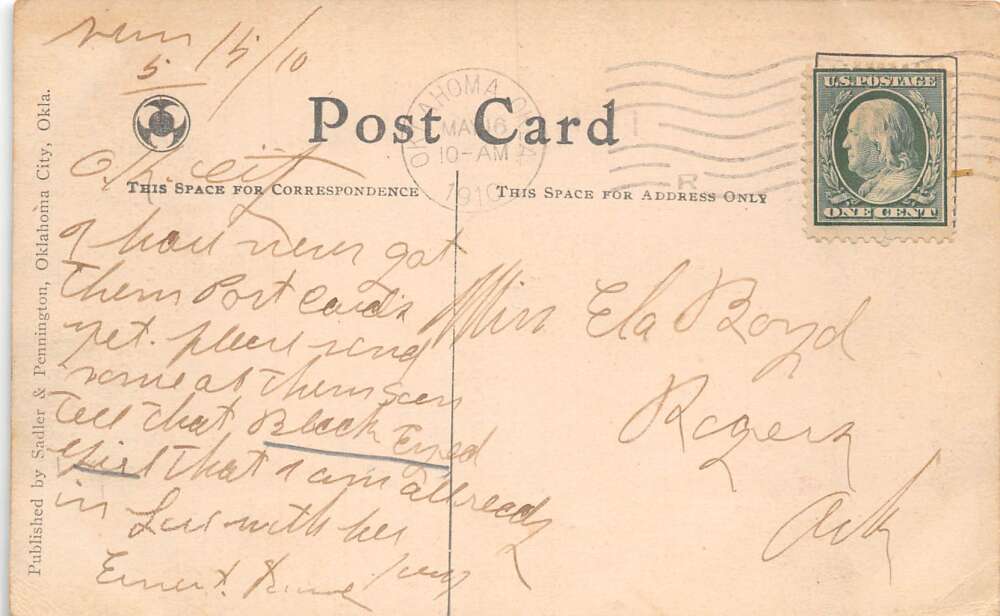 5/15/10
Post Card
OKLAHOMA
MAR 16
10-AM
1910
U.S. POSTAGE
ONE CENT
THIS SPACE FOR CORRESPONDENCE
THIS SPACE FOR ADDRESS ONLY
Ok. City
I have never got
them Post Cards
yet. please send
some at them soon
tell that Black Eyed
Girl that I am allready
in Love with her
Ernest
Miss Ela Boyd
Rogers
Ark
Published by Sadler & Pennington, Oklahoma City, Okla.